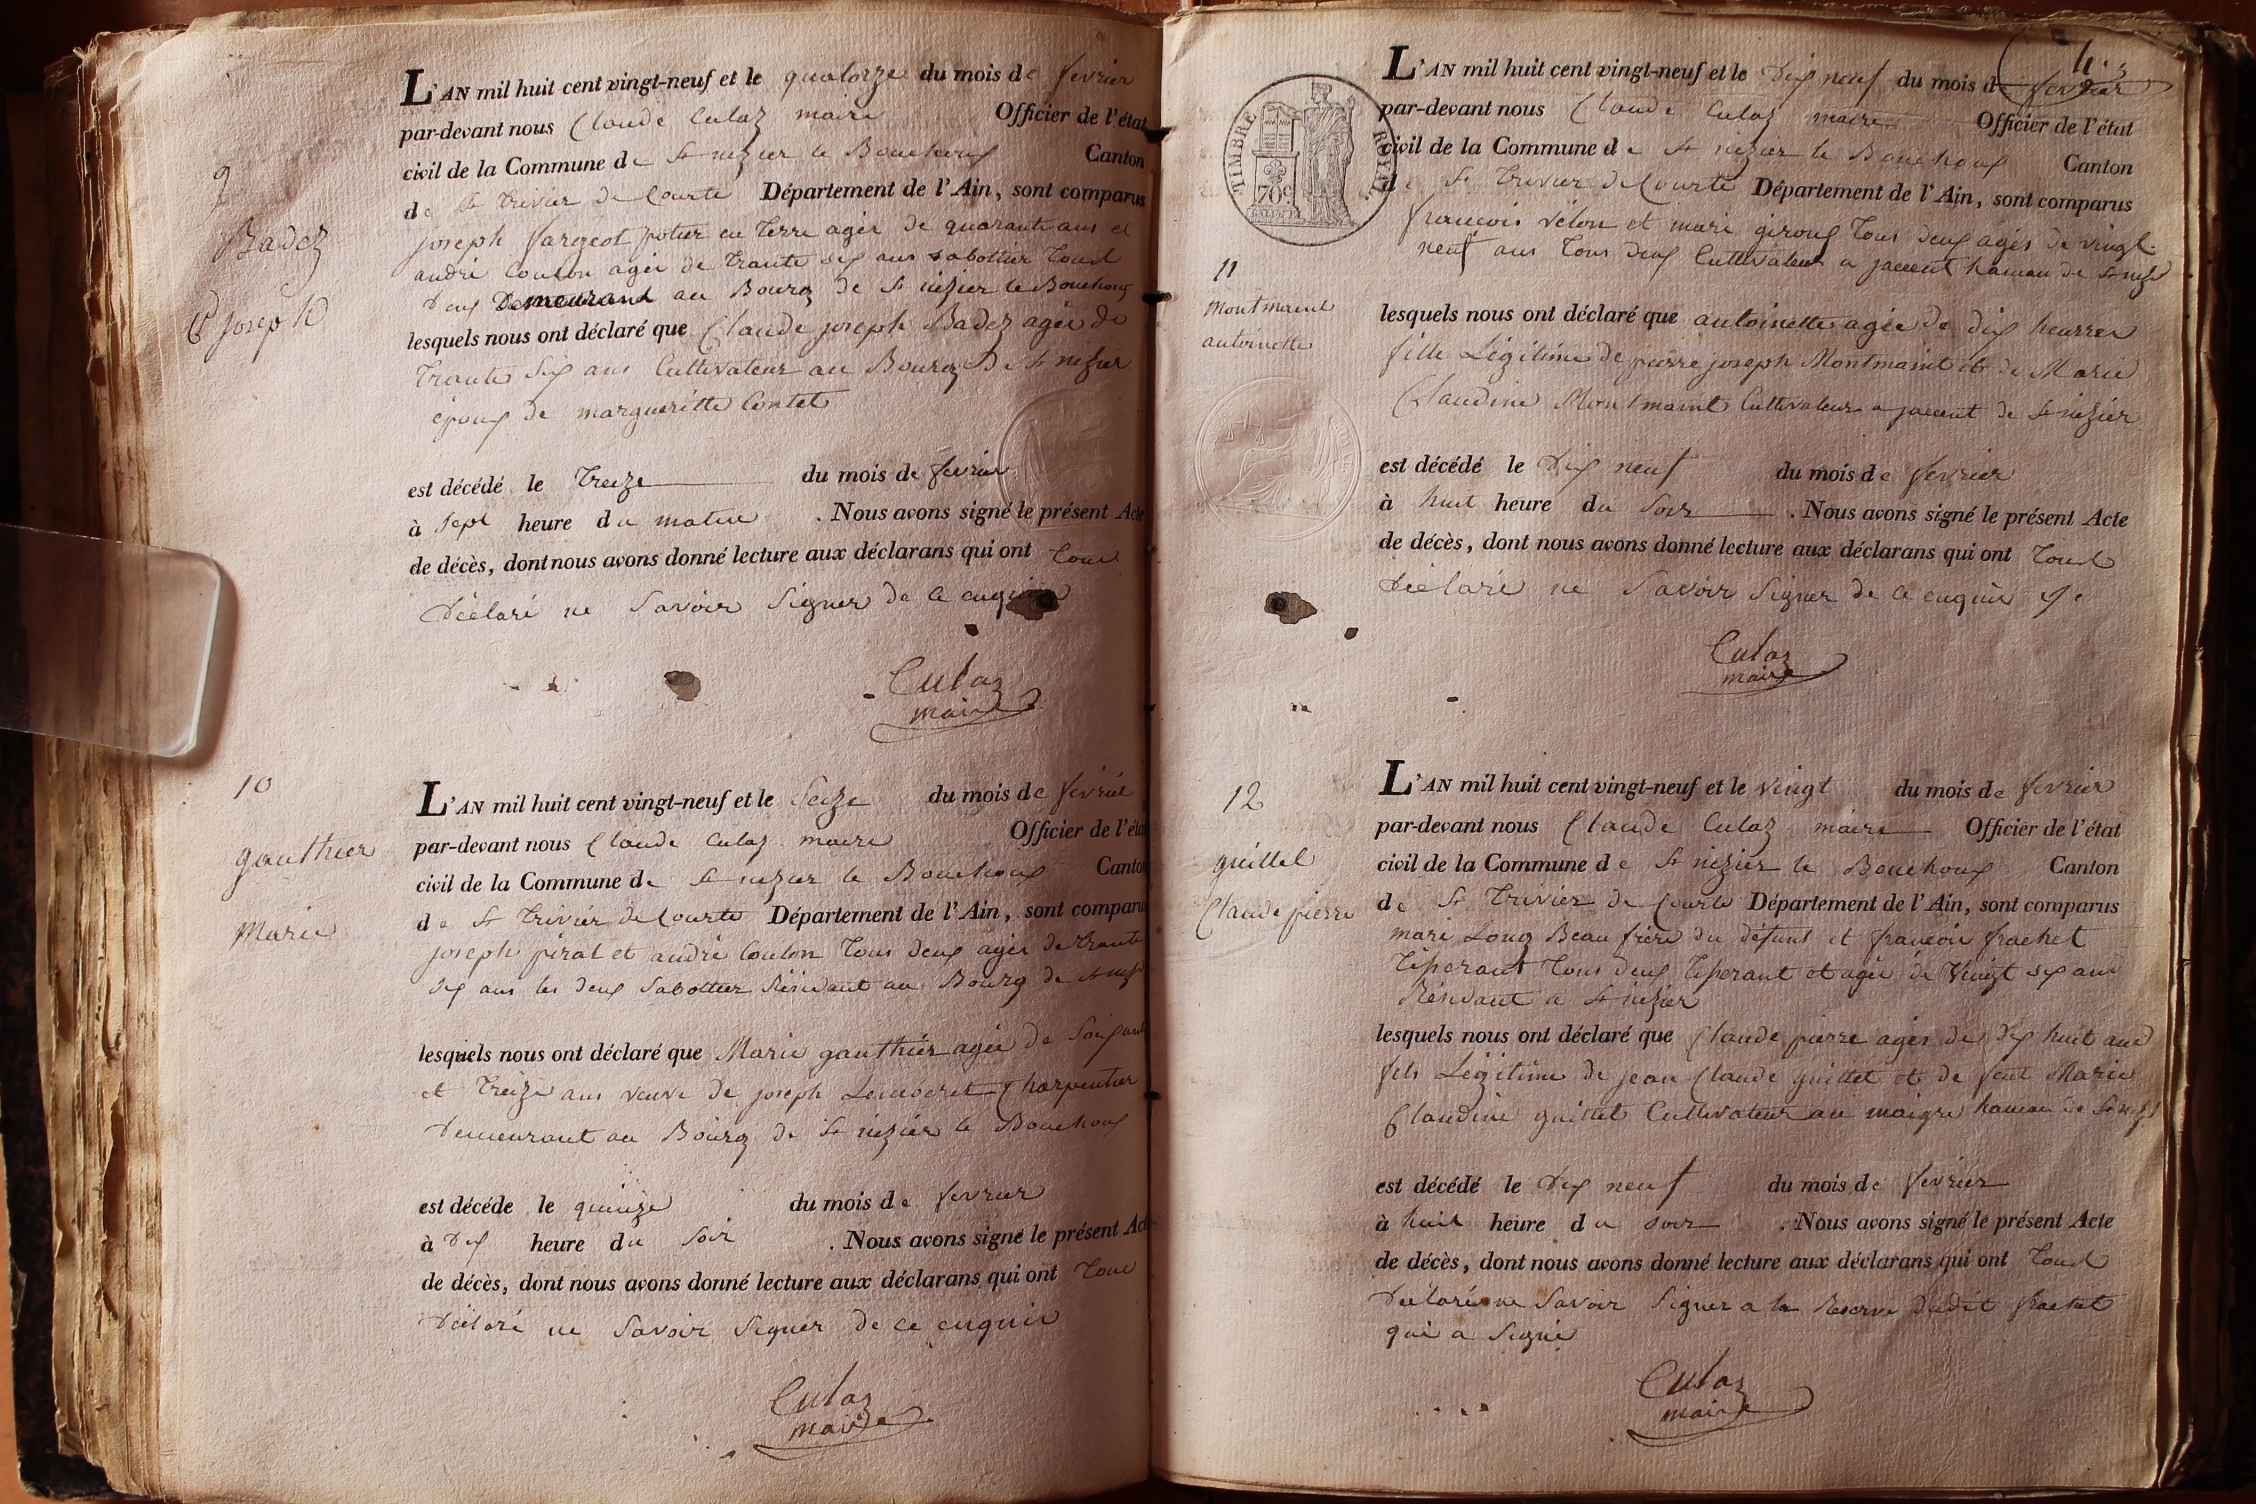 9
Badez
Cl joseph
L'AN mil huit cent vingt-neuf et le quatorze du mois de fevrier
par-devant nous Claude Culaz maire Officier de l'état
civil de la Commune de St nizier le Bouchoux Canton
de St Trivier de Courte Département de l'Ain, sont comparus
joseph fargeot potier en Terre agée de quarante ans et
andré Coulon agée de Trante six ans sabottier Tous
Deux Demeurant au Bourg de St nizier le Bouchoux
lesquels nous ont déclaré que Claude joseph Badez agée de
Trante Six ans Cultivateur au Bourg De St nizier
epoux de margueritte Contet
est décédé le Treize du mois de fevrier
à Sept heure du matin . Nous avons signé le présent Acte
de décès, dont nous avons donné lecture aux déclarans qui ont Tous
Déclaré ne Savoir Signer de ce enquis
Culaz
maire
10
gauthier
Marie
L'AN mil huit cent vingt-neuf et le Seize du mois de fevrier
par-devant nous Claude Culaz maire Officier de l'éta
civil de la Commune de St nizier le Bouchoux Canton
de St Trivier de Courte Département de l'Ain, sont comparus
joseph pirat et andré Coulon Tous deux agée de trante
six ans les deux Sabottier Résidant au Bourg de St nizi
lesquels nous ont déclaré que Marie gauthier agée de Soixante
et Treize ans veuve de joseph Charpentier
Demeurant au Bourg de St nizier le Bouchoux
est décéde le quinze du mois de fevrier
à Dix heure du Soir . Nous avons signé le présent Ac
de décès, dont nous avons donné lecture aux déclarans qui ont Tous
Déclaré ne Savoir Signer de ce enquis
Culaz
maire
4.
TIMBRE ROYAL.
70c
11
Montmaint
antoinette
L'AN mil huit cent vingt-neuf et le Dix neuf du mois de fevrier
par-devant nous Claude Culaz maire Officier de l'état
civil de la Commune de St nizier le Bouchoux Canton
de St Trivier de Courte Département de l'Ain, sont comparus
francois vélon et mari giroux Tous deux agés de vingt
neuf ans Tous deux Cultivateur a jacent hameau de St nizi
lesquels nous ont déclaré que antoinette agée de dix heurres
fille Légitime de pierre joseph Montmaint et de Marie
Claudine Montmaint Cultivateur a jacent de St nizier
est décédé le Dix neuf du mois de fevrier
à huit heure du Soir . Nous avons signé le présent Acte
de décès, dont nous avons donné lecture aux déclarans qui ont Tous
Déclaré ne Savoir Signer de ce enquis
Culaz
maire
12
guittet
Claude pierre
L'AN mil huit cent vingt-neuf et le vingt du mois de fevrier
par-devant nous Claude Culaz maire Officier de l'état
civil de la Commune de St nizier le Bouchoux Canton
de St Trivier de Courte Département de l'Ain, sont comparus
mari Long Beau frère du défunt et francois frachet
Tisserant Tous deux Tisserant et agée de Vingt six ans
Résidant a St nizier
lesquels nous ont déclaré que Claude pierre agés de dix huit ans
fils Légitime de jean Claude guittet et de feue Marie
Claudine guittet Cultivateur au maigre hameau de St nizi
est décédé le Dix neuf du mois de fevrier
à huit heure du soir . Nous avons signé le présent Acte
de décès, dont nous avons donné lecture aux déclarans qui ont Tous
Déclaré ne Savoir Signer a la Reserve Dudit frachet
qui a Signé
Culaz
maire